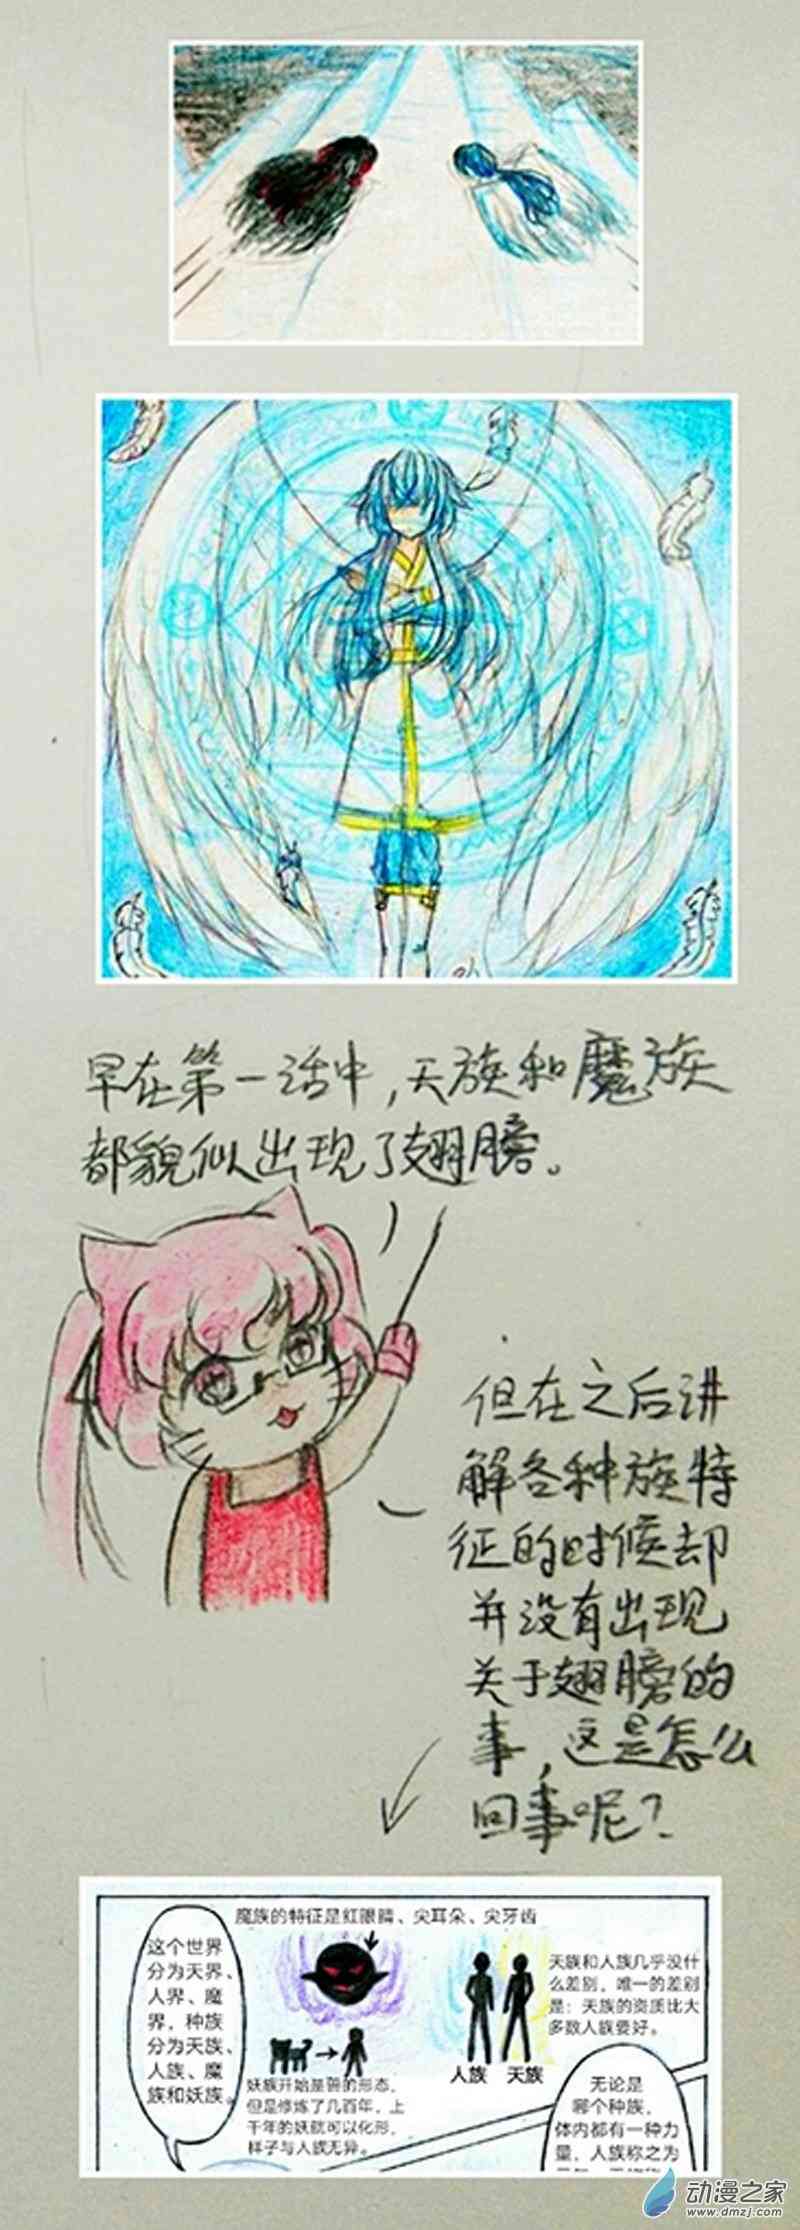 早在第一话中,天族和魔族
都貌似出现了翅膀。
但在之后讲
解各种族特
征的时候却
并没有出现
关于翅膀的
事,这是怎么
回事呢?
魔族的特征是红眼睛、尖耳朵、尖牙齿
这个世界
分为天界、
人界、魔
界，种族
分为天族、
人族、魔
族和妖族。
天族和人族几乎没什
么差别，唯一的差别
是：天族的资质比大
多数人族要好。
人族 天族
妖族开始是兽的形态，
但是修炼了几百年，上
千年的妖就可以化形，
样子与人族无异。
无论是
哪个种族，
体内都有一种力
量，人族称之为
动漫之家
www.dmzj.com